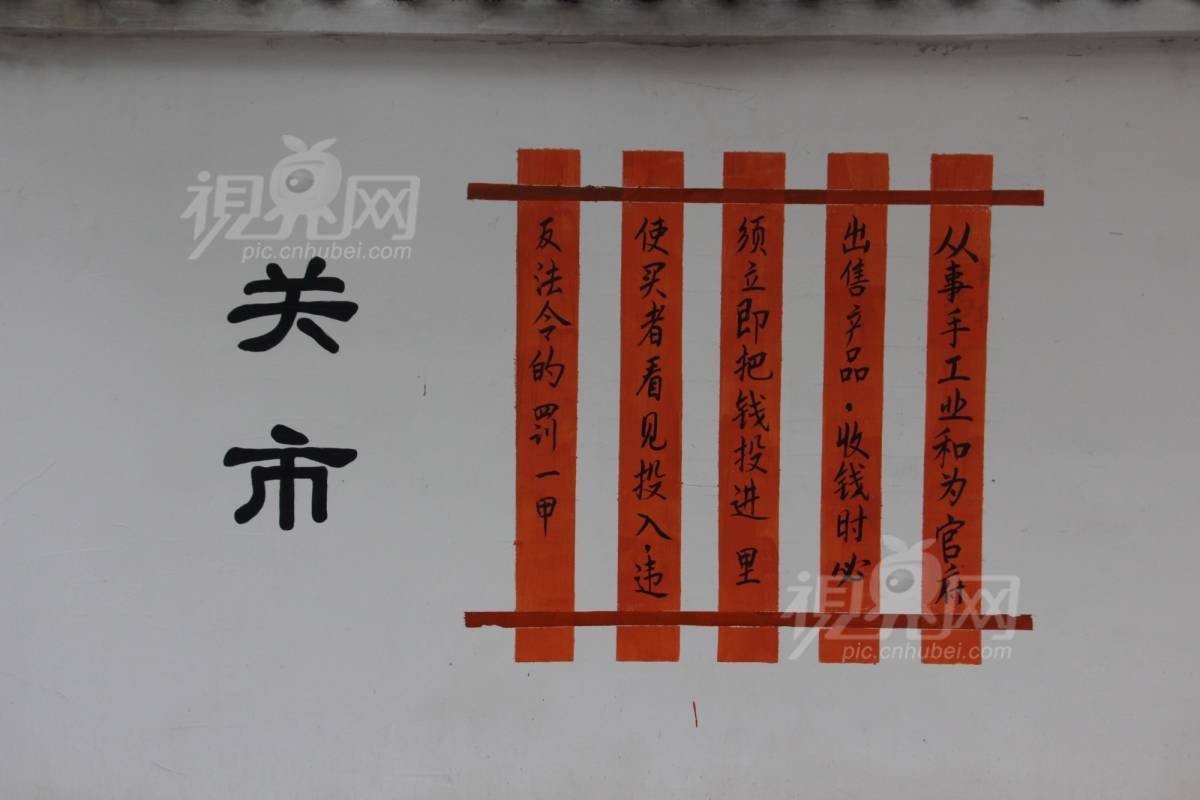 关市
从事手工业和为官府
出售产品·收钱时必
须立即把钱投进 里
使买者看见投入·违
反法令的罚一甲
視界网
pic.cnhubei.com
視界网
pic.cnhubei.com